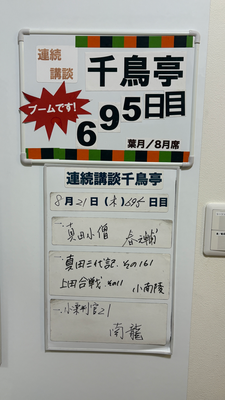 連続
講談
千鳥亭
ブームです!
695日目
葉月/8月席
連続講談千鳥亭
8月21日(木)695日目
一、真田小僧
一、真田三代記、その161
上田合戦、その11 小南陵
一、小栗判官21
南龍